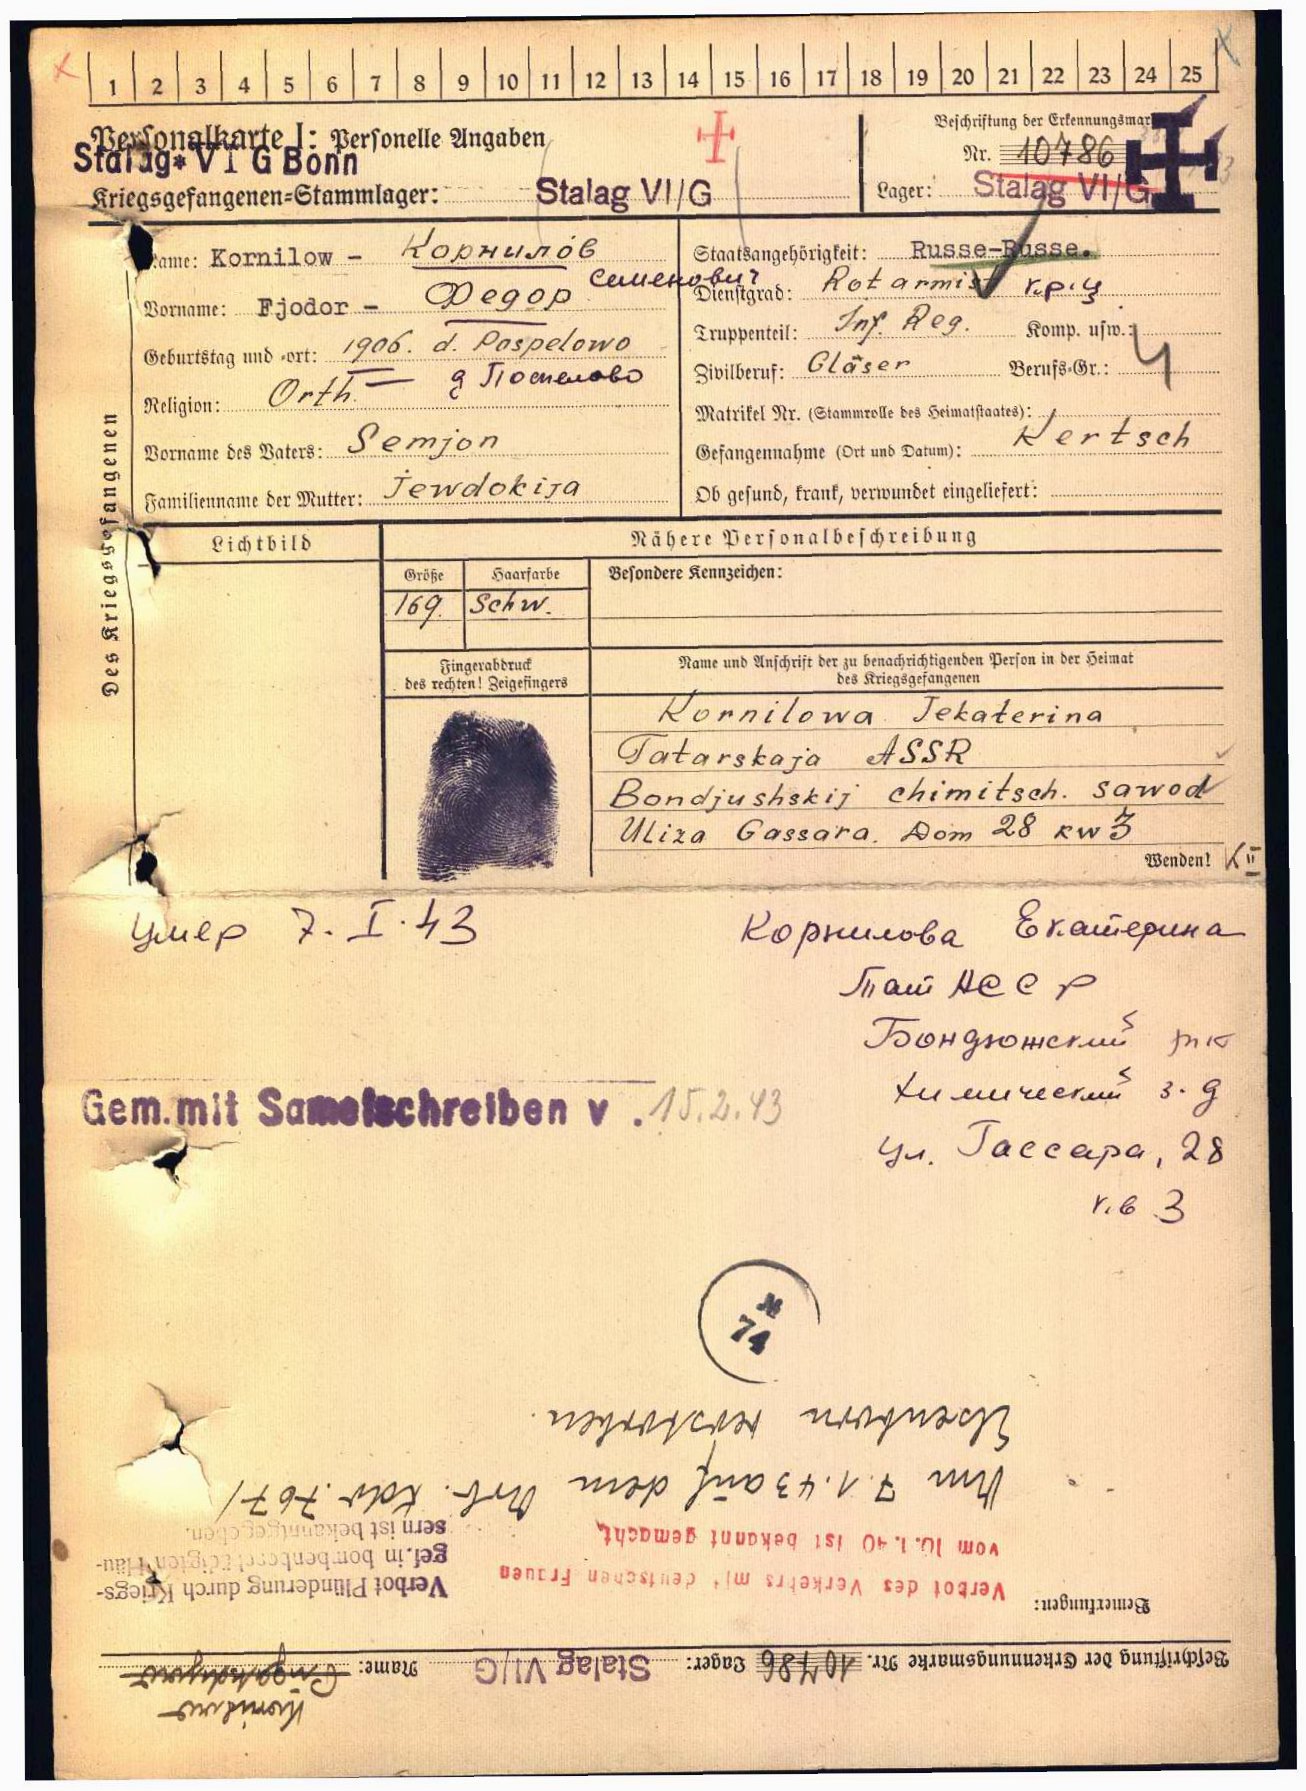 1 2 3 4 5 6 7 8 9 10 11 12 13 14 15 16 17 18 19 20 21 22 23 24 25
Personalkarte I: Personelle Angaben
Stalag VI G Bonn
Kriegsgefangenen-Stammlager: Stalag VI/G
Beschriftung der Erkennungsmarke
Nr. 10786
Lager: Stalag VI/G
Des Kriegsgefangenen
Name: Kornilow - Корнилов
Семенович
Vorname: Fjodor - Федор
Geburtstag und -ort: 1906. d. Pospelowo
д Поспелово
Religion: Orth.
Vorname des Vaters: Semjon
Familienname der Mutter: Jewdokija
Staatsangehörigkeit: Russe-Russe.
Dienstgrad: Rotarmist кр.ц
Truppenteil: Inf. Reg. Komp. usw.:
Zivilberuf: Gläser Berufs-Gr.: 4
Matrikel Nr. (Stammrolle des Heimatstaates):
Gefangennahme (Ort und Datum): Kertsch
Ob gesund, krank, verwundet eingeliefert:
Lichtbild
Nähere Personalbeschreibung
Größe Haarfarbe Besondere Kennzeichen:
169. Schw.
Fingerabdruck
des rechten! Zeigefingers
Name und Anschrift der zu benachrichtigenden Person in der Heimat
des Kriegsgefangenen
Kornilowa Jekaterina
Tatarskaja ASSR
Bondjushskij chimitsch. sawod
Uliza Gassara. Dom 28 kw 3
Wenden!
умер 7. I. 43
Корнилова Екатерина
Тат АССР
Бондюжский
химический з-д
ул. Гассара, 28
кв 3
Gem. mit Samelschreiben v. 15.2.43
N
74
Beschriftung der Erkennungsmarke Nr. 10786 Lager: Stalag VI/G Name:
Kornilow
Bemerkungen:
Verbot des Verkehrs mit deutschen Frauen
vom 10.1.40 ist bekannt gemacht,
Verbot Plünderung durch Kriegs-
gef. in bombenbeschädigten Häu-
sern ist bekanntgegeben.
Am 7.1.43 auf dem Arb. Kdo. 767/
Elsenborn verstorben.